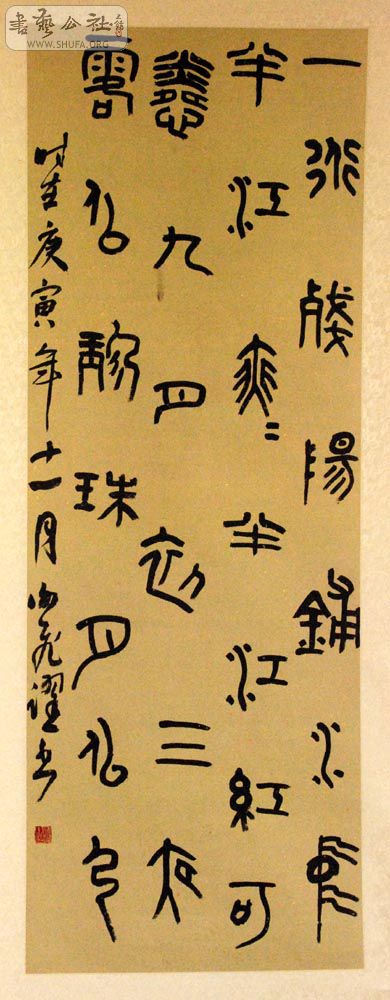 書藝公社
WWW.SHUFA.ORG
一道殘陽鋪水中
半江瑟瑟半江紅可
憐九月初三夜
露似珍珠月似弓
時在庚寅年十一月書